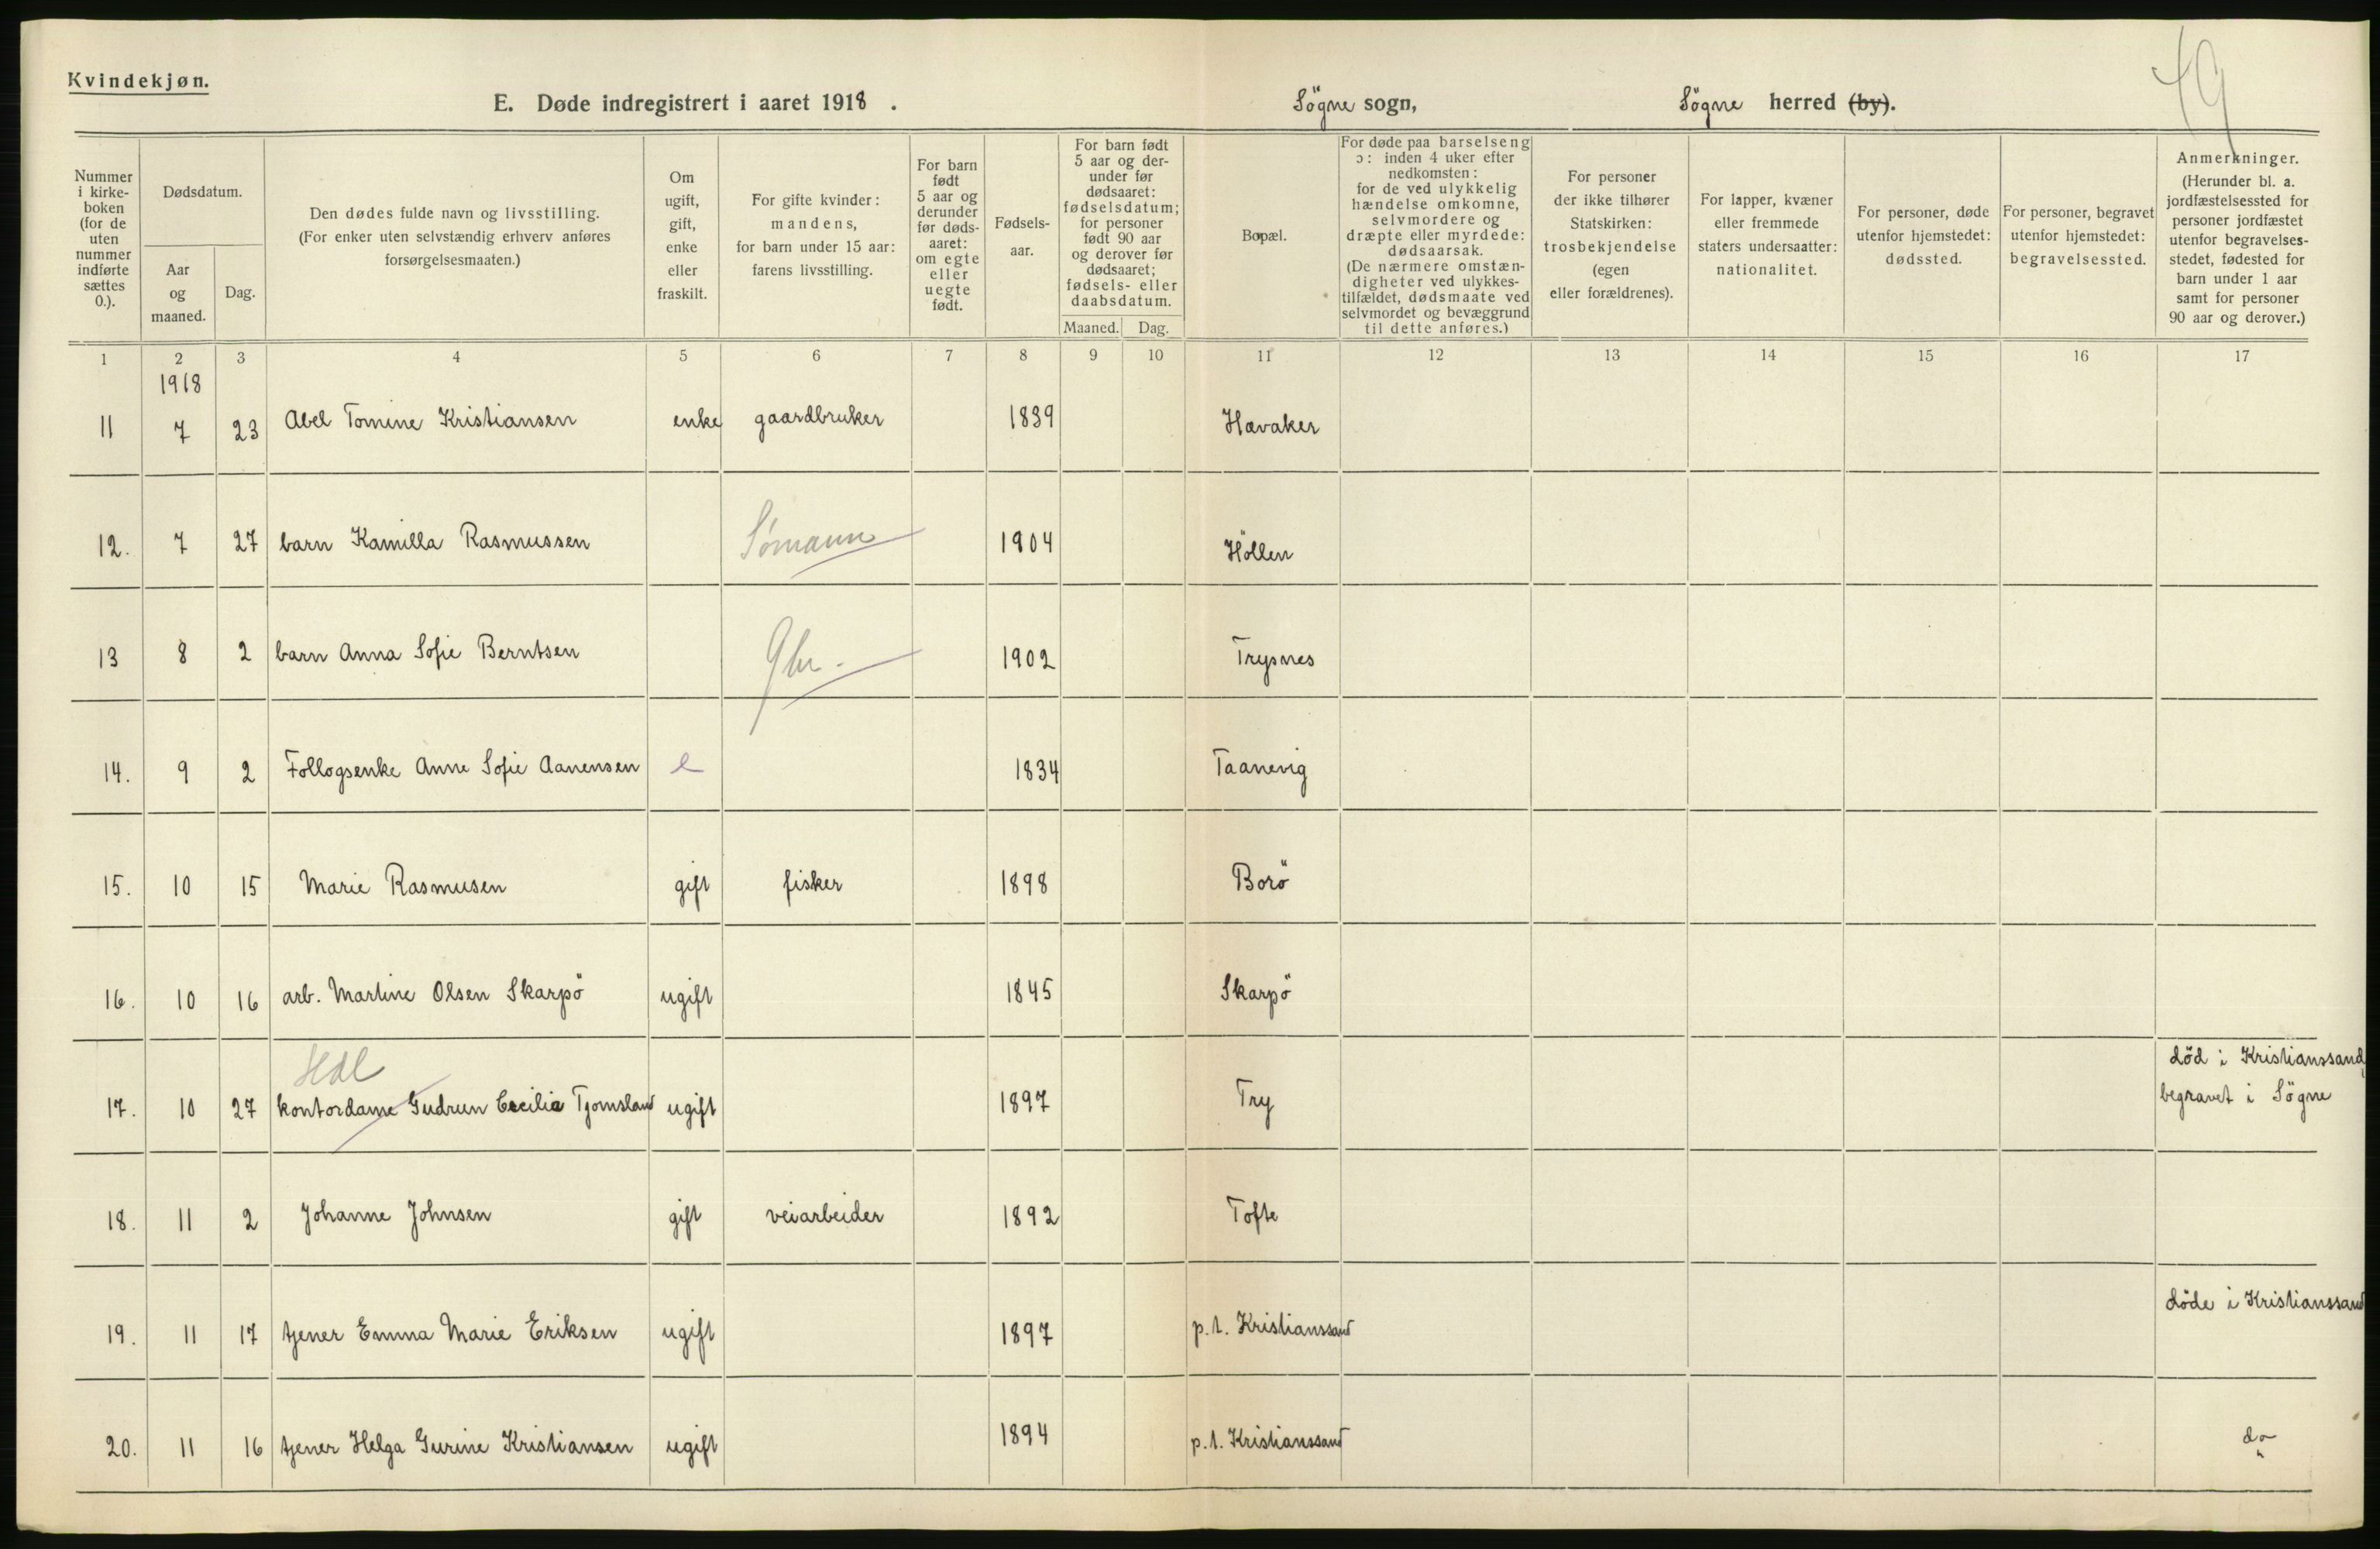 Kvindekjøn.
49
E. Døde indregistrert i aaret 1918 . Sögne sogn, Sögne herred (by).
Nummer i kirke- boken (for de uten nummer indførte sættes 0.).
Dødsdatum.
Aar og maaned.
Dag.
Den dødes fulde navn og livsstilling.
(For enker uten selvstændig erhverv anføres
forsørgelsesmaaten.)
Om ugift, gift, enke eller fraskilt.
For gifte kvinder:
mandens,
for barn under 15 aar:
farens livsstilling.
For barn født 5 aar og derunder før døds- aaret: om egte eller uegte født.
Fødsels- aar.
For barn født 5 aar og der- under før dødsaaret: fødselsdatum; for personer født 90 aar og derover før dødsaaret; fødsels- eller daabsdatum.
Maaned. Dag.
Bopæl.
For døde paa barselseng
ɔ: inden 4 uker efter
nedkomsten:
for de ved ulykkelig
hændelse omkomne,
selvmordere og
dræpte eller myrdede:
dødsaarsak.
(De nærmere omstæn-
digheter ved ulykkes-
tilfældet, dødsmaate ved
selvmordet og bevæggrund
til dette anføres.)
For personer
der ikke tilhører
Statskirken:
trosbekjendelse
(egen
eller forældrenes).
For lapper, kvæner
eller fremmede
staters undersaatter:
nationalitet.
For personer, døde
utenfor hjemstedet:
dødssted.
For personer, begravet
utenfor hjemstedet:
begravelsessted.
Anmerkninger.
(Herunder bl. a.
jordfæstelsessted for
personer jordfæstet
utenfor begravelses-
stedet, fødested for
barn under 1 aar
samt for personer
90 aar og derover.)
1 2 3 4 5 6 7 8 9 10 11 12 13 14 15 16 17
1918
11 7 23 Abel Tomine Kristiansen enke gaardbruker 1839 Havaker
12. 7 27 barn Kamilla Rasmussen Sømann 1904 Höllen
13 8 2 barn Anna Sofie Berntsen Gbr. 1902 Trysnes
14. 9 2 Follogsenke Anne Sofie Aanensen e 1834 Taanevig
15. 10 15 Marie Rasmusen gift fisker 1898 Borö
16. 10 16 arb. Martine Olsen Skarpö ugift 1845 Skarpö
Hdl
död i Kristianssand,
17. 10 27 kontordame Gudrun Cecilia Tjomsland ugift 1897 Try begravet i Sögne
18. 11 2 Johanne Johnsen gift veiarbeider 1892 Tofte
döde i Kristianssand
19. 11 17 tjener Emma Marie Eriksen ugift 1897 p.t. Kristianssand
20. 11 16 tjener Helga Gurine Kristiansen ugift 1894 p.t. Kristianssand do